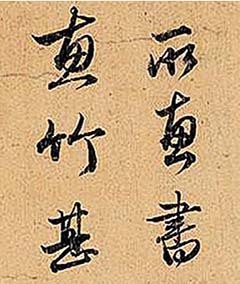 所惠書
惠竹甚